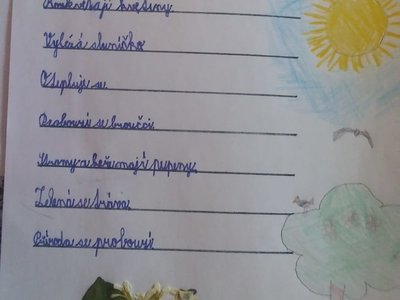 Rozkvétají květiny.
Vylézá sluníčko
Otepluje se
Probouzí se broučci
Stromy a keře mají pupeny
Zelená se tráva
Příroda se probouzí